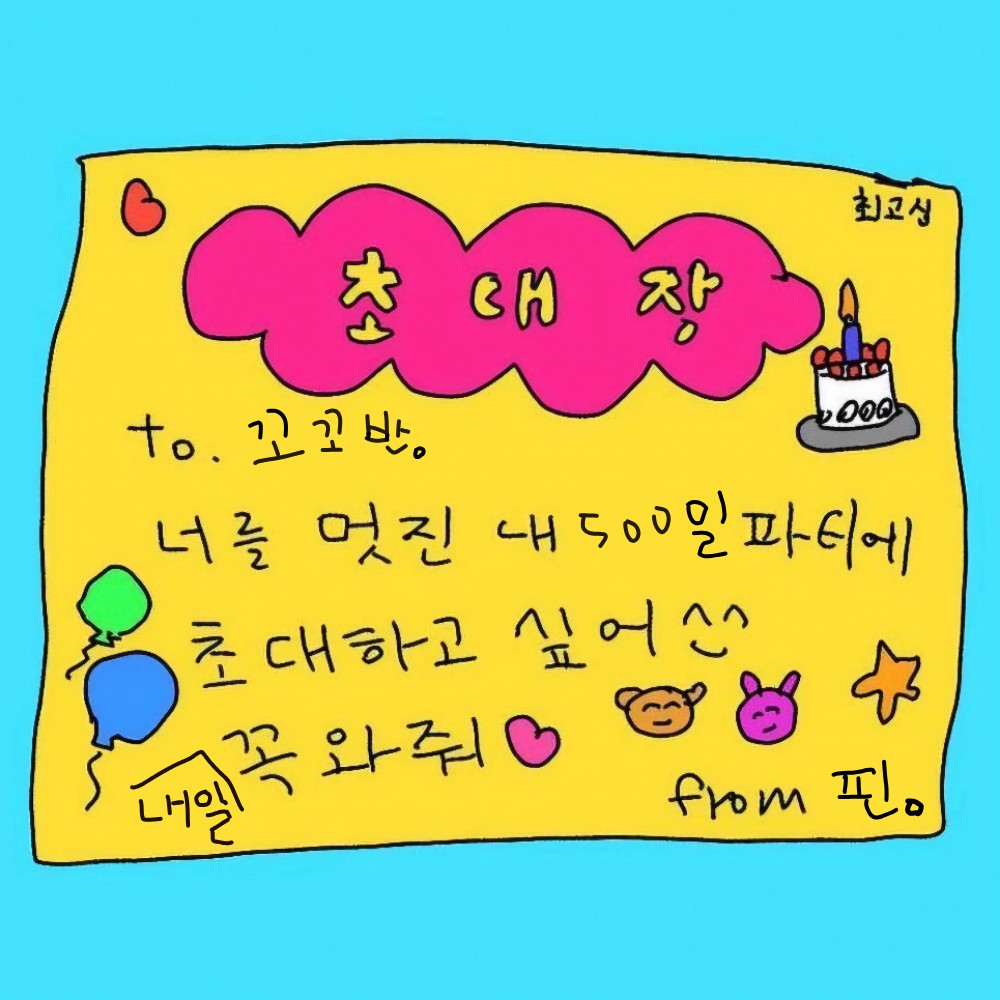 최고심
초대장
to. 꼬꼬반。
너를 멋진 내 500일 파티에
초대하고 싶어 ^^
내일 꼭 와줘
from 핀。